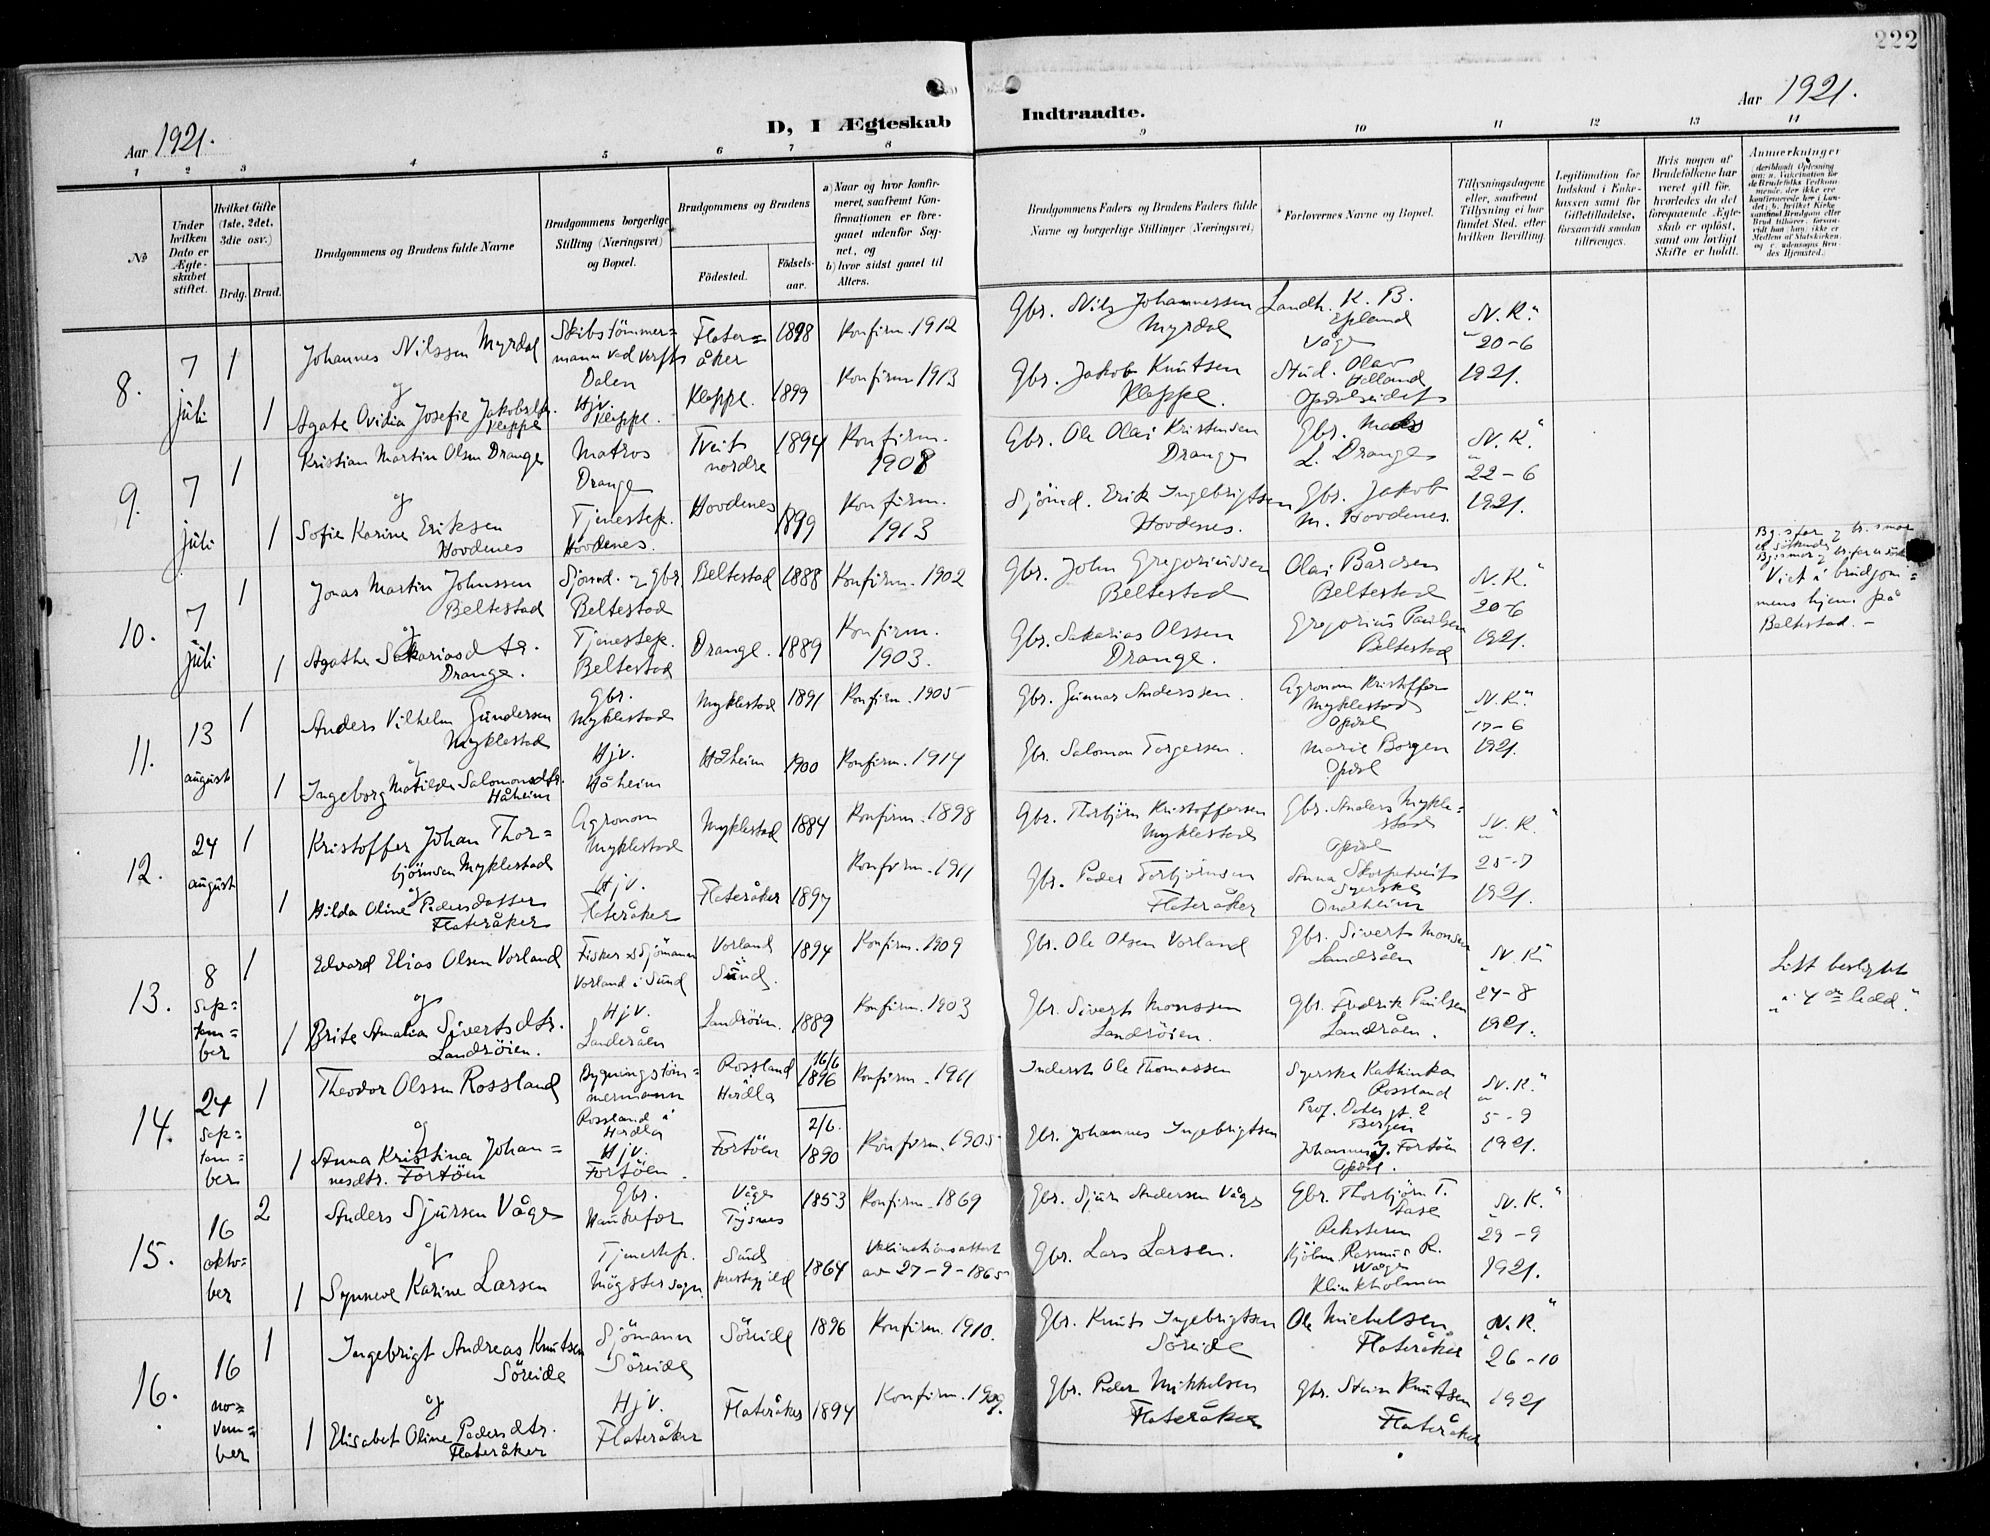 222
Aar 1921.
D, I Ægteskab Indtraadte.
Aar 1921.
1 2 3 4 5 6 7 8 9 10 11 12 13 14
No
Under hvilken Dato er Ægteskabet stiftet.
Hvilket Gifte (1ste, 2det, 3die osv.)
Brdg. Brud.
Brudgommens og Brudens fulde Navne
Brudgommens borgerlige Stilling (Næringsvei) og Bopæl.
Brudgommens og Brudens
Födested.
Födsels-aar.
a) Naar og hvor konfirmeret, saafremt Konfirmationen er foregaaet udenfor Sognet, og
b) hvor sidst gaaet til Alters.
Brudgommens Faders og Brudens Faders fulde Navne og borgerlige Stillinger (Næringsvei)
Forlovernes Navne og Bopæl.
Tillysningsdagene eller, saafremt Tillysning ei har fundet Sted, efter hvilken Bevilling.
Legitimation for Indskud i Enkekassen samt for Giftetilladelse, forsaavidt saadan tiltrænges.
Hvis nogen af Brudefolkene har været gift för, hvorledes da det foregaaende Ægteskab er oplöst, samt om lovligt Skifte er holdt.
Anmærkninger
8.
7 juli
1
Johannes Nilssen Myrdal
Skibstömmermann ved verft
Dalen
Flateråker
1898
Konfirm. 1912
Gbr. Nils Johannessen Myrdal
Landh. K. B. Epland
Våge
N. K."
20-6
1921.
og
1
Agate Ovidia Josefie Jakobsdtr. Kleppe
Hjv.
Kleppe.
Kleppe.
1899
Konfirm 1913
Gbr. Jakob Knutsen Kleppe.
Stud. Olav Helland
9.
7 juli
1
Kristian Martin Olsen Drange
Matros
Drange
Tveit nordre
1894
Konfirm. 1908
Gbr. Ole Olai Kristensen Drange
Gbr. Mads L. Drange
N. K."
22-6
1921.
og
1
Sofie Karine Eriksen Hovdenes
Tjenestep.
Hovdenes.
Hovdenes
1899
Konfirm. 1913
Sjömd. Erik Ingebrigtsen Hovdenes.
Gbr. Jakob M. Hovdenes.
10.
7 juli
1
Jonas Martin Johnssen Beltestad
Sjömd. & gbr.
Beltestad
Beltestad
1888
Konfirm. 1902
Gbr. John Gregoriussen Beltestad
Olai Bårdsen Beltestad
N. K."
20-6
1921.
Viet i brudgommens hjem på Beltestad. -
og
1
Agathe Sakariasdtr. Drange.
Tjenestep.
Beltestad
Drange.
1889
Konfirm. 1903.
Gbr. Sakarias Olssen Drange.
Gregorius Paulsen Beltestad
11.
13 august
1
Anders Vilhelm Gundersen Myklestad
Gbr.
Myklestad
Myklestad
1891
Konfirm. 1905
Gbr. Gunnar Anderssen.
Agronom Kristoffer Myklestad
Opdal
N. K."
17-6
1921.
og
1
Ingeborg Matilde Salomonsdtr. Håheim
Hjv.
Håheim
Håheim
1900
Konfirm. 1914
Gbr. Salomon Torgersen.
Marie Borgen
Opdal
12.
24 august
1
Kristoffer Johan Thorbjörnsen Myklestad
Agronom
Myklestad
Myklestad
1884
Konfirm. 1898
Gbr. Thorbjörn Kristoffersen Myklestad
Gbr. Anders Myklestad
Opdal
N. K."
25-7
1921.
og
1
Hilda Oline Pedersdatter Flateråker
Hjv.
Flateråker
Flateråker
1897
Konfirm. 1911
Gbr. Peder Torbjörnsen Flateråker
Syerske
13.
8 september
1
Edvard Elias Olsen Vorland
Fisker & Sjömann
Vorland i Sund
Vorland Sund.
1894
Konfirm. 1909
Gbr. Ole Olsen Vorland
Gbr. Sivert Monsen Landråen
N. K."
24-8
1921.
Litt beslegtet i 4de ledd."
og
1
Brite Amalia Sivertsdtr. Landröien.
Hjv.
Landeråen
Landröien.
1889
Konfirm. 1903
Gbr. Sivert Monssen Landröien.
Gbr. Fredrik Paulsen Landråen.
14.
24 september
1
Theodor Olssen Rossland
Bygningstömmermann
Rossland i Herdla
Rossland Herdla
16/6 1896
Konfirm. 1911
Inderst Ole Thomassen
Syerske Kathinka Rossland
Bergen
N. K."
5-9
1921.
og
1
Anna Kristina Johannesdtr. Fortöen
Hjv.
Fortöen.
Fortöen
2/6. 1890
Konfirm. 1905
Gbr. Johannes Ingebrigtsen
Johannes J. Fortöen
Opdal.
15.
16 oktober
2
Anders Sjursen Våge
Gbr.
Haukefær
Våge Tysnes
1853
Konfirm. 1869
Gbr. Sjur Andersen Våge
Gbr. Thorbjörn T. Sase
Reksteren
N. K."
29-9
1921.
og
1
Synneve Karine Larsen
Tjenestep.
Mögster sogn.
Sund prestegjeld
1864
Vaksinationsattest av 27-9-1865
Gbr. Lars Larsen.
Kjöbm. Rasmus R. Våge
Klinkholmen
16.
16 november
1
Ingebrigt Andreas Knutsen Söreide
Sjömann
Söreide
Söreide
1896
Konfirm. 1910.
Gbr. Knut Ingebrigtsen Söreide
Ole Michelsen Flateråker
N. K."
26-10
1921
og
1
Elisabet Oline Pedersdtr. Flateråker
Hjv.
Flateråker
Flateråker
1894
Konfirm. 1909.
Gbr. Peder Mikkelsen Flateråker
Gbr. Stein Knutsen Flateråker